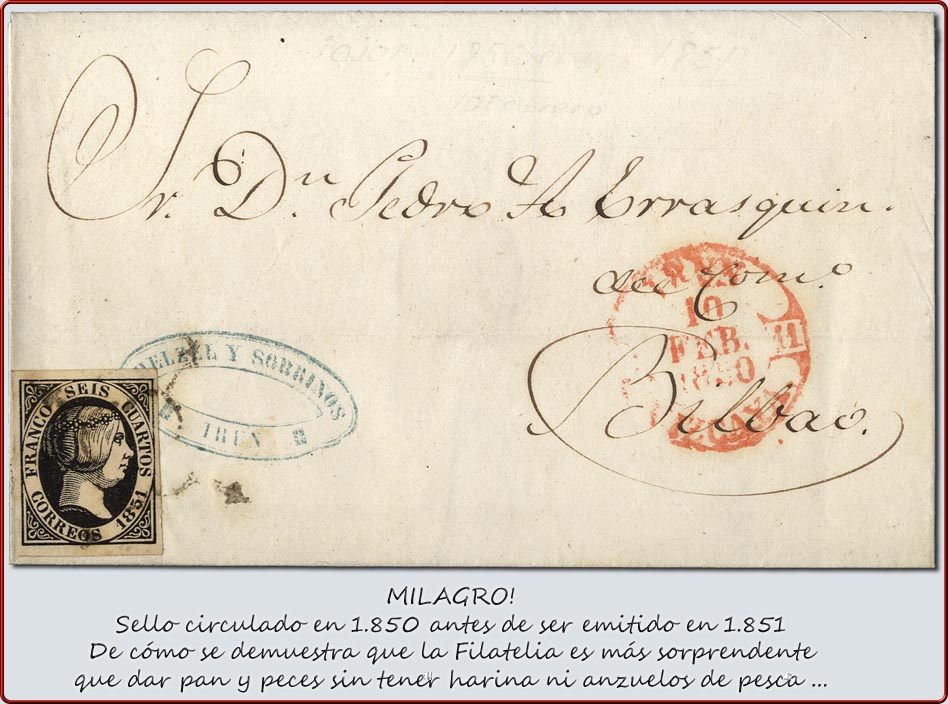 1850 1851
Sr. Dn. Pedro A Errasquin.
del Como.
Bilbao.
10
FEB.
1850
11
Y SOBRINOS
IRUN
FRANCO SEIS CUARTOS
CORREOS 1851
MILAGRO!
Sello circulado en 1.850 antes de ser emitido en 1.851
De cómo se demuestra que la Filatelia es más sorprendente
que dar pan y peces sin tener harina ni anzuelos de pesca ...